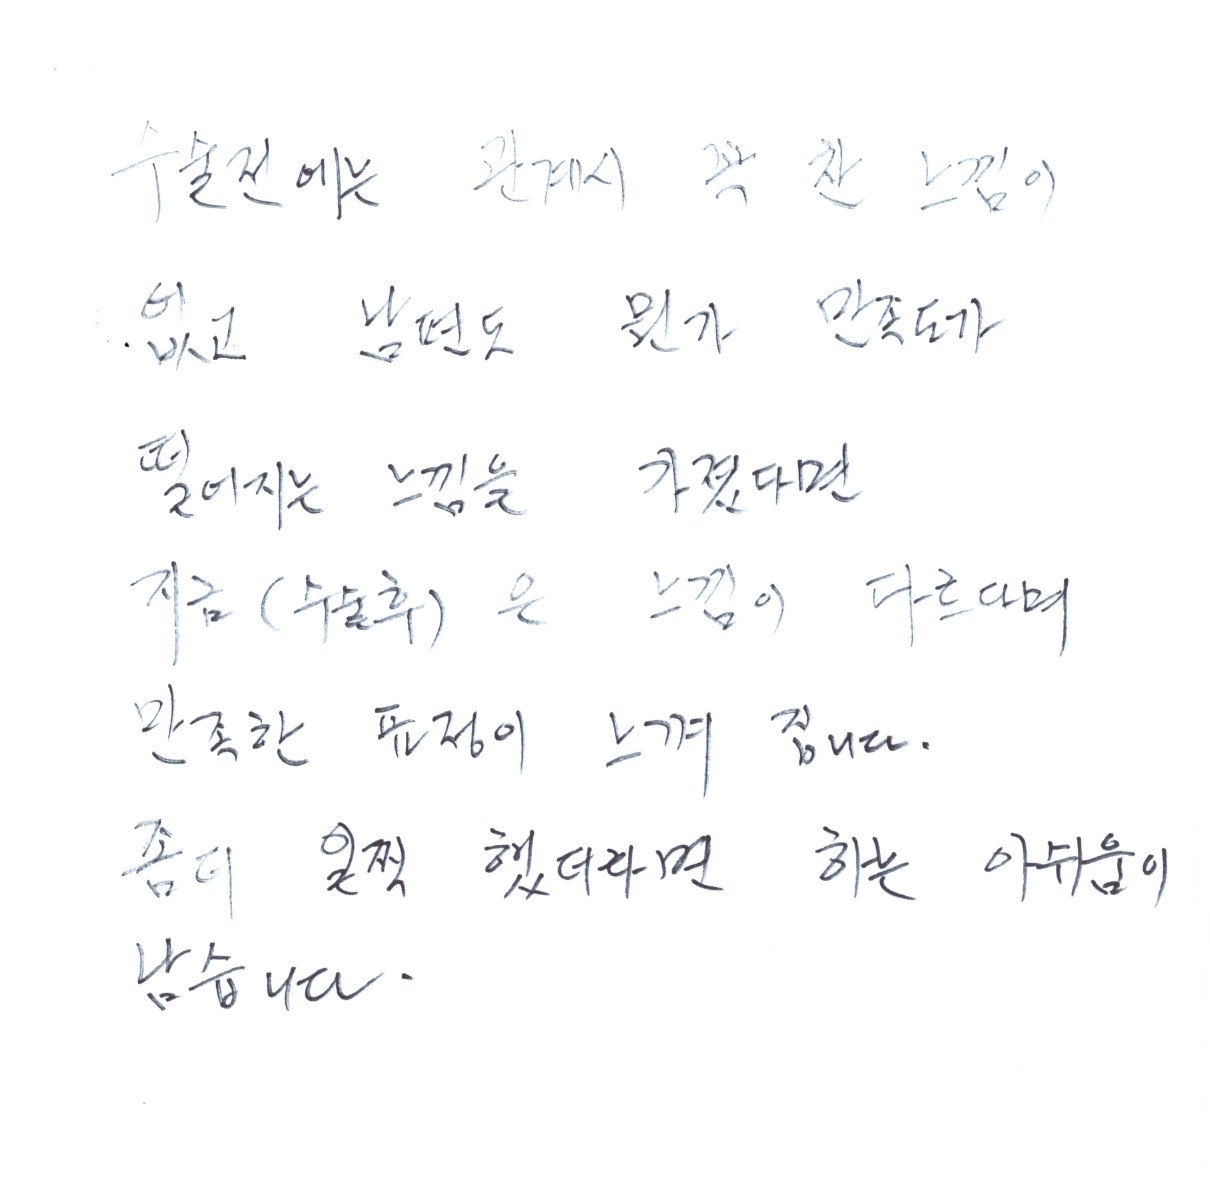 수술전에는 관계시 꽉 찬 느낌이
없고 남편도 뭔가 만족도가
떨어지는 느낌을 가졌다면
지금(수술후)은 느낌이 다르다며
만족한 표정이 느껴 집니다.
좀더 일찍 했더라면 하는 아쉬움이
남습니다.